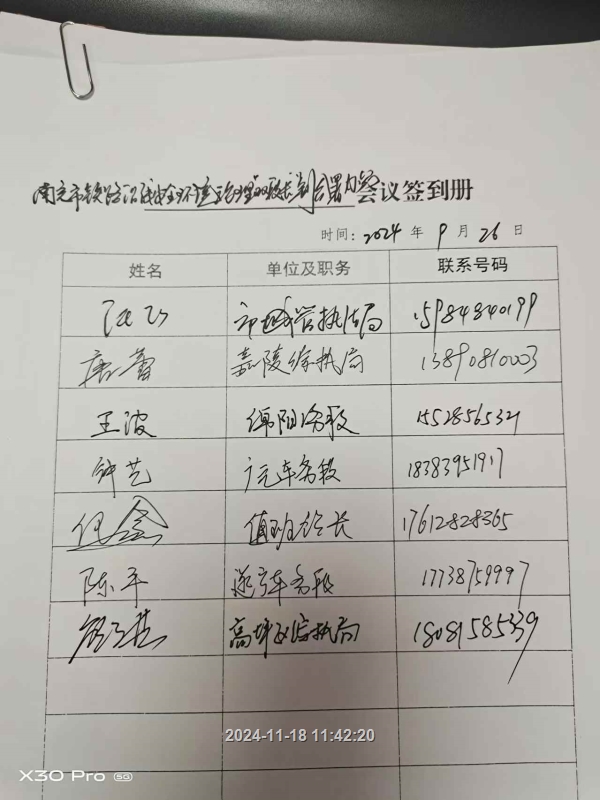 南充市铁路沿线安全环境治理 会议签到册
时间：2024 年 9 月 26 日
姓名 单位及职务 联系号码
市城管执法局 15984840199
唐蕾 嘉陵综执局 13890810003
王波 绵阳 15528565321
钟艺 车务段 18383951917
任鑫 值班 长 17612828365
陈平 遂宁车务段 17738759997
高坪区综执局 18081585339
2024-11-18 11:42:20
X30 Pro 5G